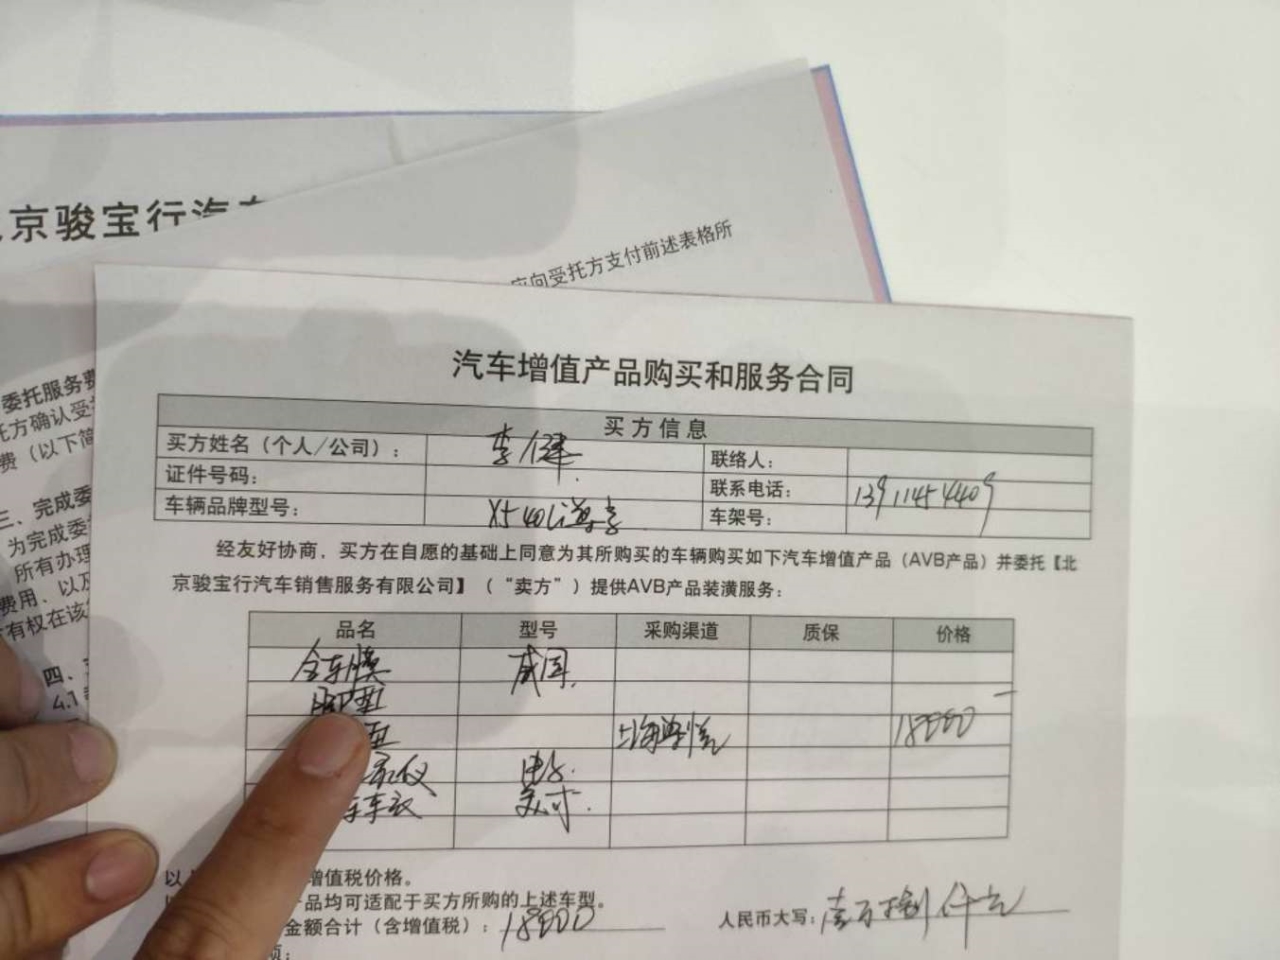 京骏宝行汽车
应向受托方支付前述表格所
委托服务费
托方确认受
费（以下简
三、完成委
为完成委
所有办理
费用、以及
有权在该
四、
4.1
汽车增值产品购买和服务合同
买方信息
买方姓名（个人/公司）： 李健 联络人：
证件号码： 联系电话： 13911454409
车辆品牌型号： X5 40Li 尊享 车架号：
经友好协商，买方在自愿的基础上同意为其所购买的车辆购买如下汽车增值产品（AVB产品）并委托【北
京骏宝行汽车销售服务有限公司】（“卖方”）提供AVB产品装潢服务：
品名 型号 采购渠道 质保 价格
全车膜 威固
脚垫
垫 18000
录仪
车衣
以 增值税价格。
产品均可适配于买方所购的上述车型。
金额合计（含增值税）： 18000 人民币大写： 壹万捌仟元